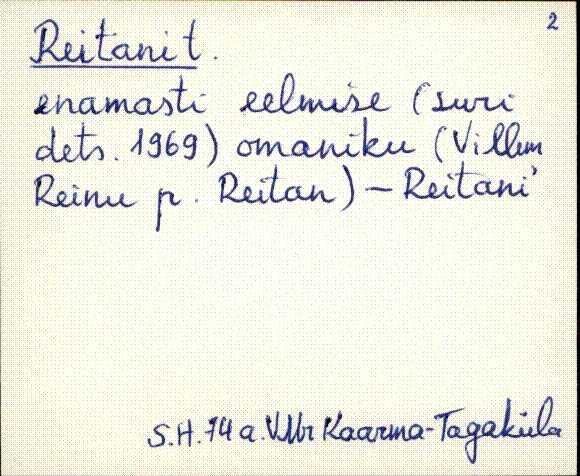 2
Reitani t.
enamasti eelmise (suri
dets. 1969) omaniku (Villem
Reinu p. Reitan) – Reitani'
S.H. 74 a. VMr Kaarma-Tagaküla